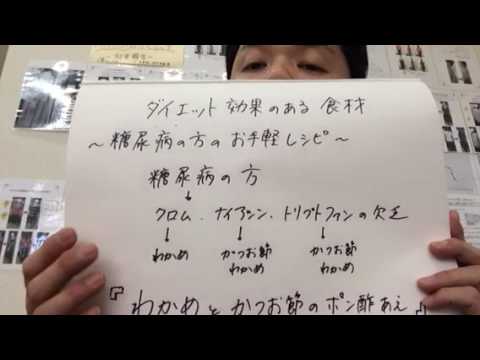 ダイエット効果のある食材
～糖尿病の方のお手軽レシピ～
糖尿病の方
↓
クロム、ナイアシン、トリプトファンの欠乏
↓ ↓ ↓
わかめ かつお節 かつお節
わかめ わかめ
『わかめとかつお節のポン酢あえ』